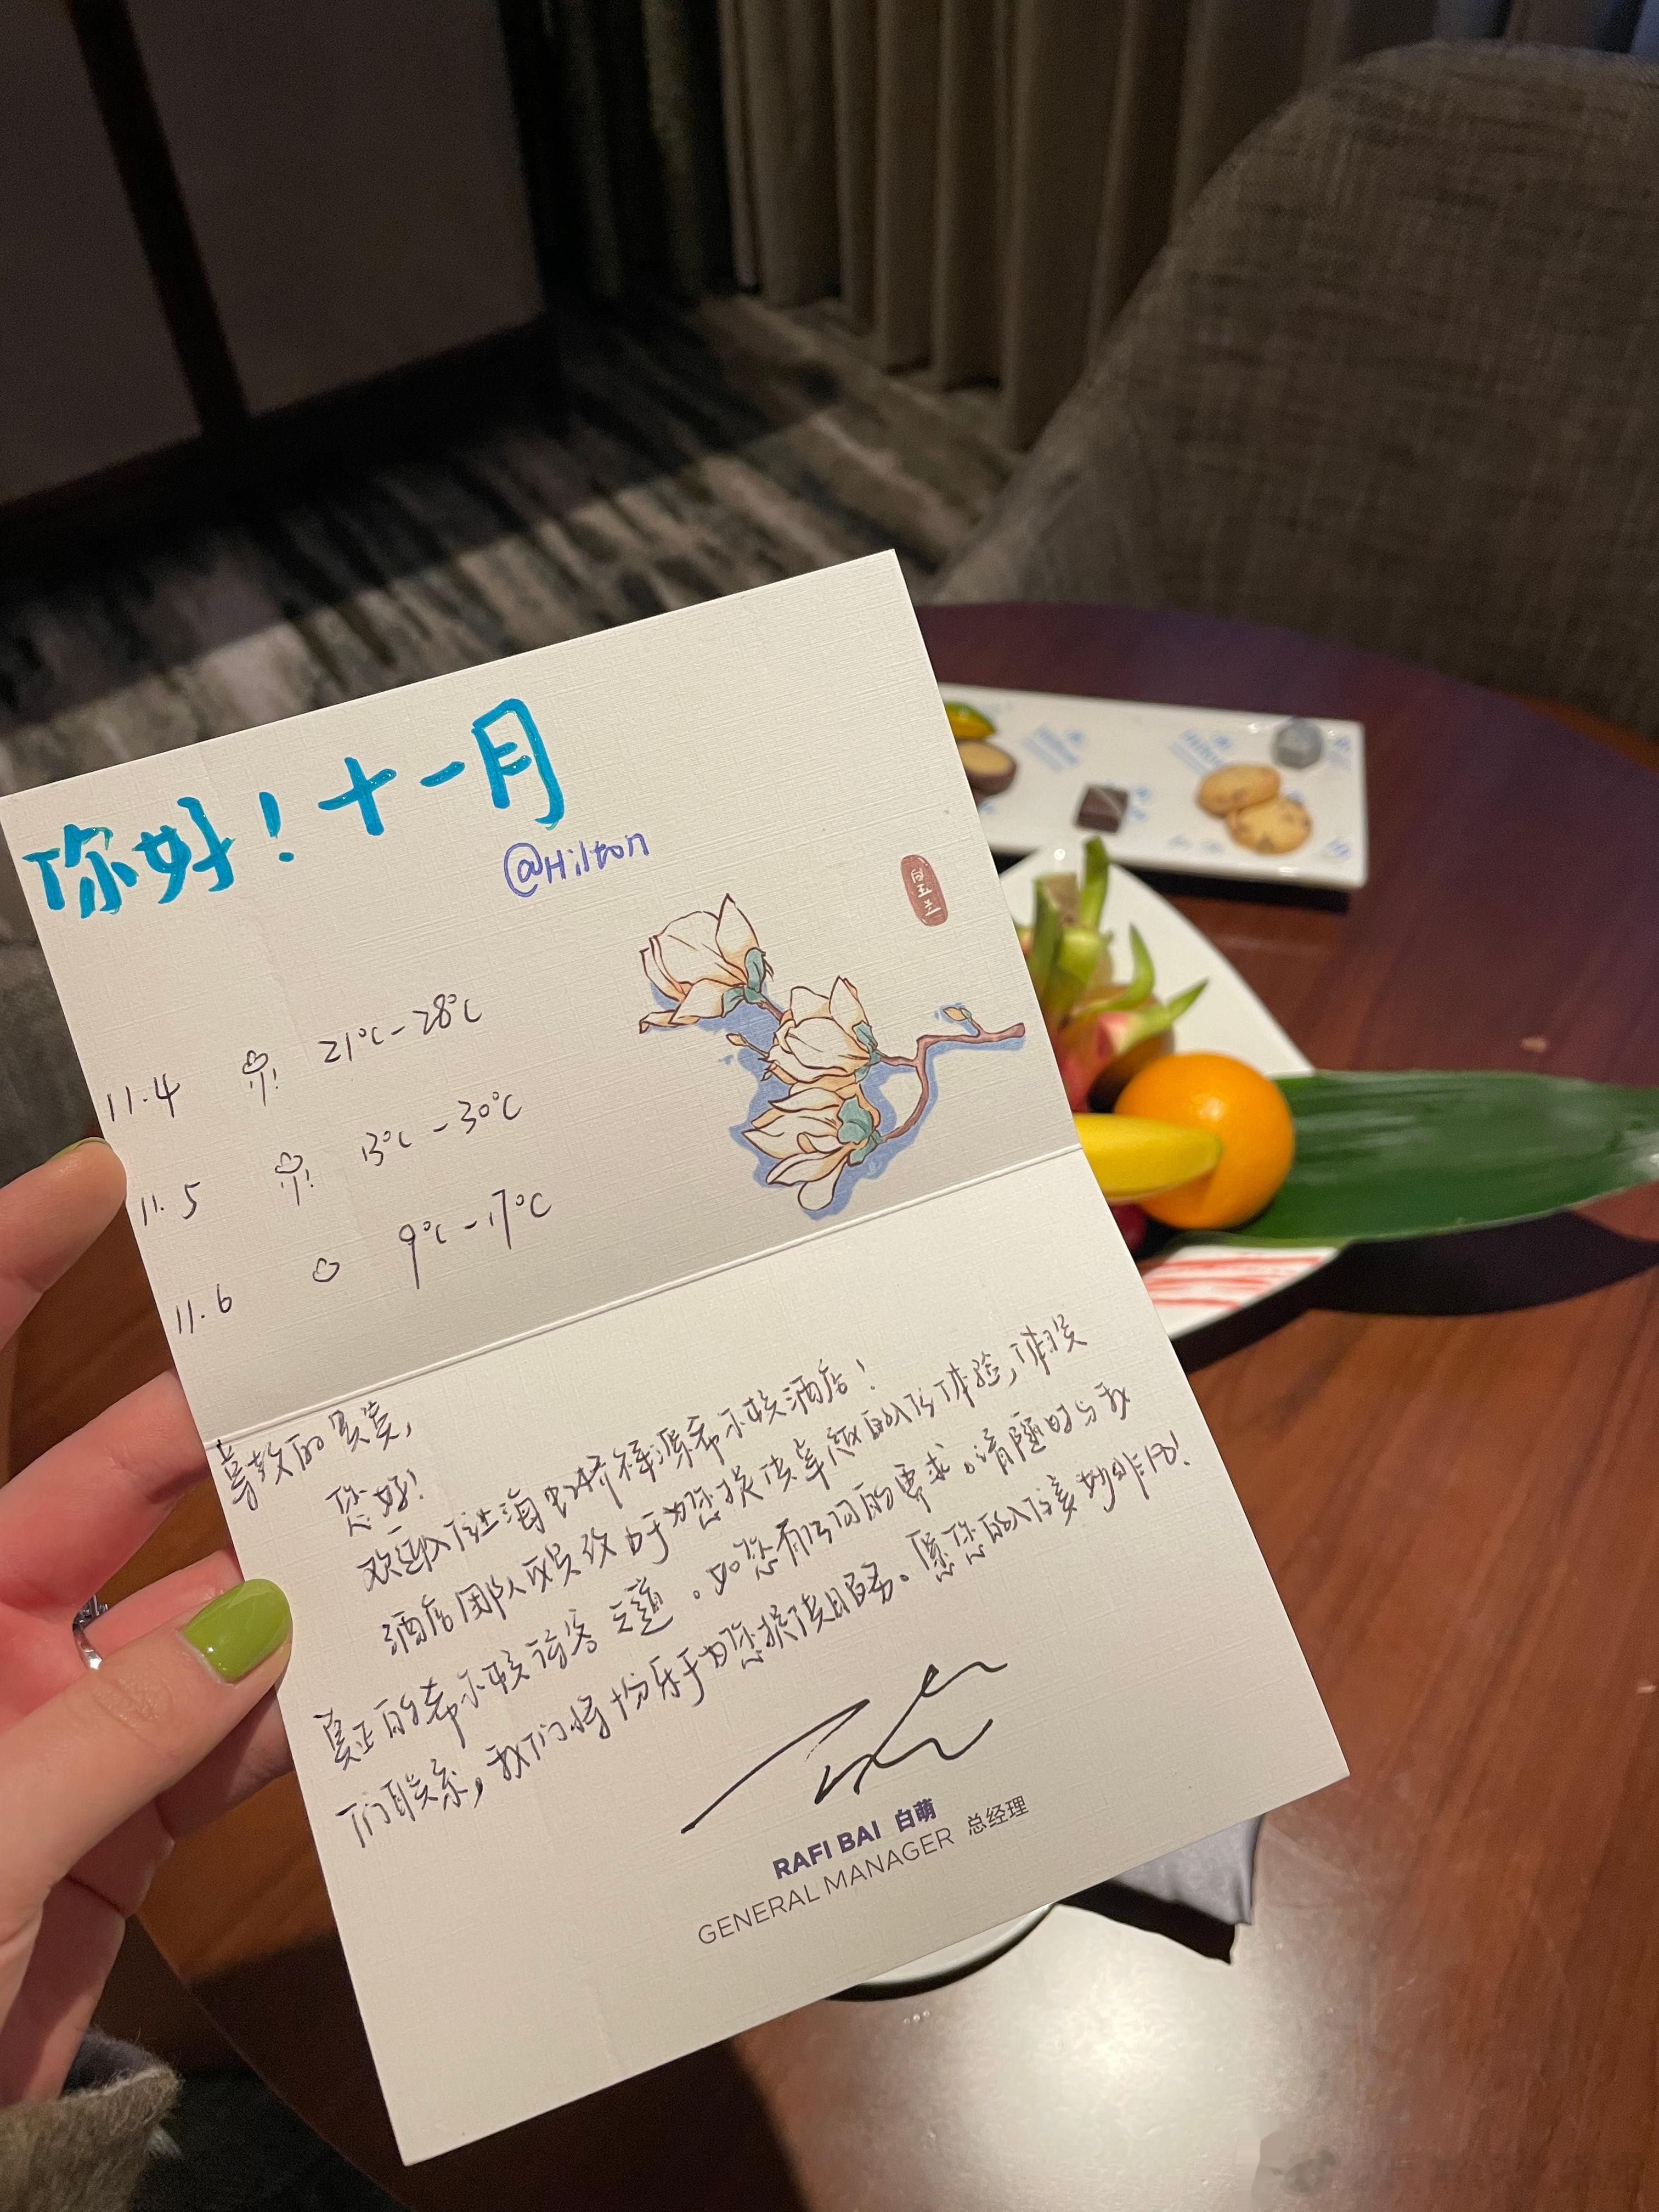 你好！十一月
@Hilton
白玉兰
11.4 21℃-28℃
11.5 13℃-30℃
11.6 9℃-17℃
尊敬的贵宾，
您好！
欢迎入住上海虹桥祥源希尔顿酒店！
酒店团队成员致力于为您提供卓越的入住体验，体现
真正的希尔顿待客之道。如您有任何的要求。请随时与我
们联系，我们将十分乐于为您提供服务。愿您的入住美妙非凡！
RAFI BAI 白萌
GENERAL MANAGER 总经理
Hilton